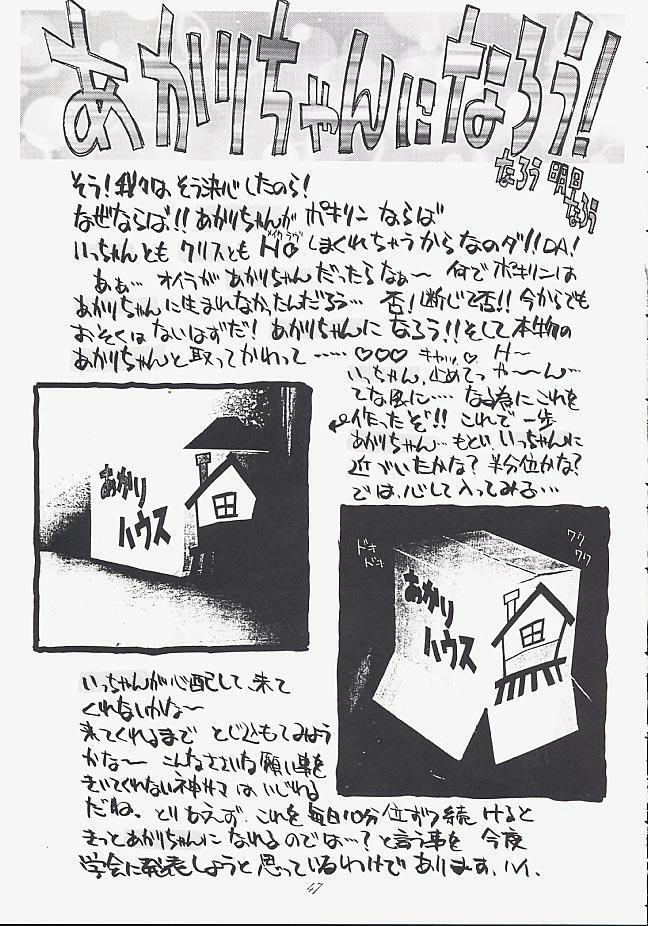 あかりちゃんになろう!
なろう 明日
なろう
そう!我々は、そう決心したのら!
なぜならば!!あかりちゃんが ポキリン ならば
いっちゃんとも クリスとも HO しまくれちゃうからなのダ!!DA!
メイクラヴ
あぁ… オイラが あかりちゃん だったらなぁ〜 何で ポキリンは
あかりちゃんに生まれなかったんだろう… 否!断じて否!!今からでも
おそくはないはずだ! あかりちゃんに なろう!!そして本物の
あかりちゃんと取ってかわって ‥‥‥ ♡♡♡ キャッ♡ H〜
いっちゃん、止めてっ や〜ん…
てな風に… なる為にこれを
作ったぞ!! これで一歩
あかりちゃん… もとい いっちゃんに
近づいたかな? 半分位かな?
では、心して入ってみる…
あかり
ハウス
ドキ
ドキ
ワク
ワク
あかり
ハウス
いっちゃんが心配して、来て
くれないかな〜
来てくれるまで とじ込もてみよう
かな〜 こんなささいな願い事を
きいてくれない神サマ は、いじわる
だね。とりあえず、これを 毎日10分 位ずつ続けると
きっとあかりちゃんに なれる のでは…?と言う事を 今度
学会に発表しようと思っているわけであります、ハイ、
47